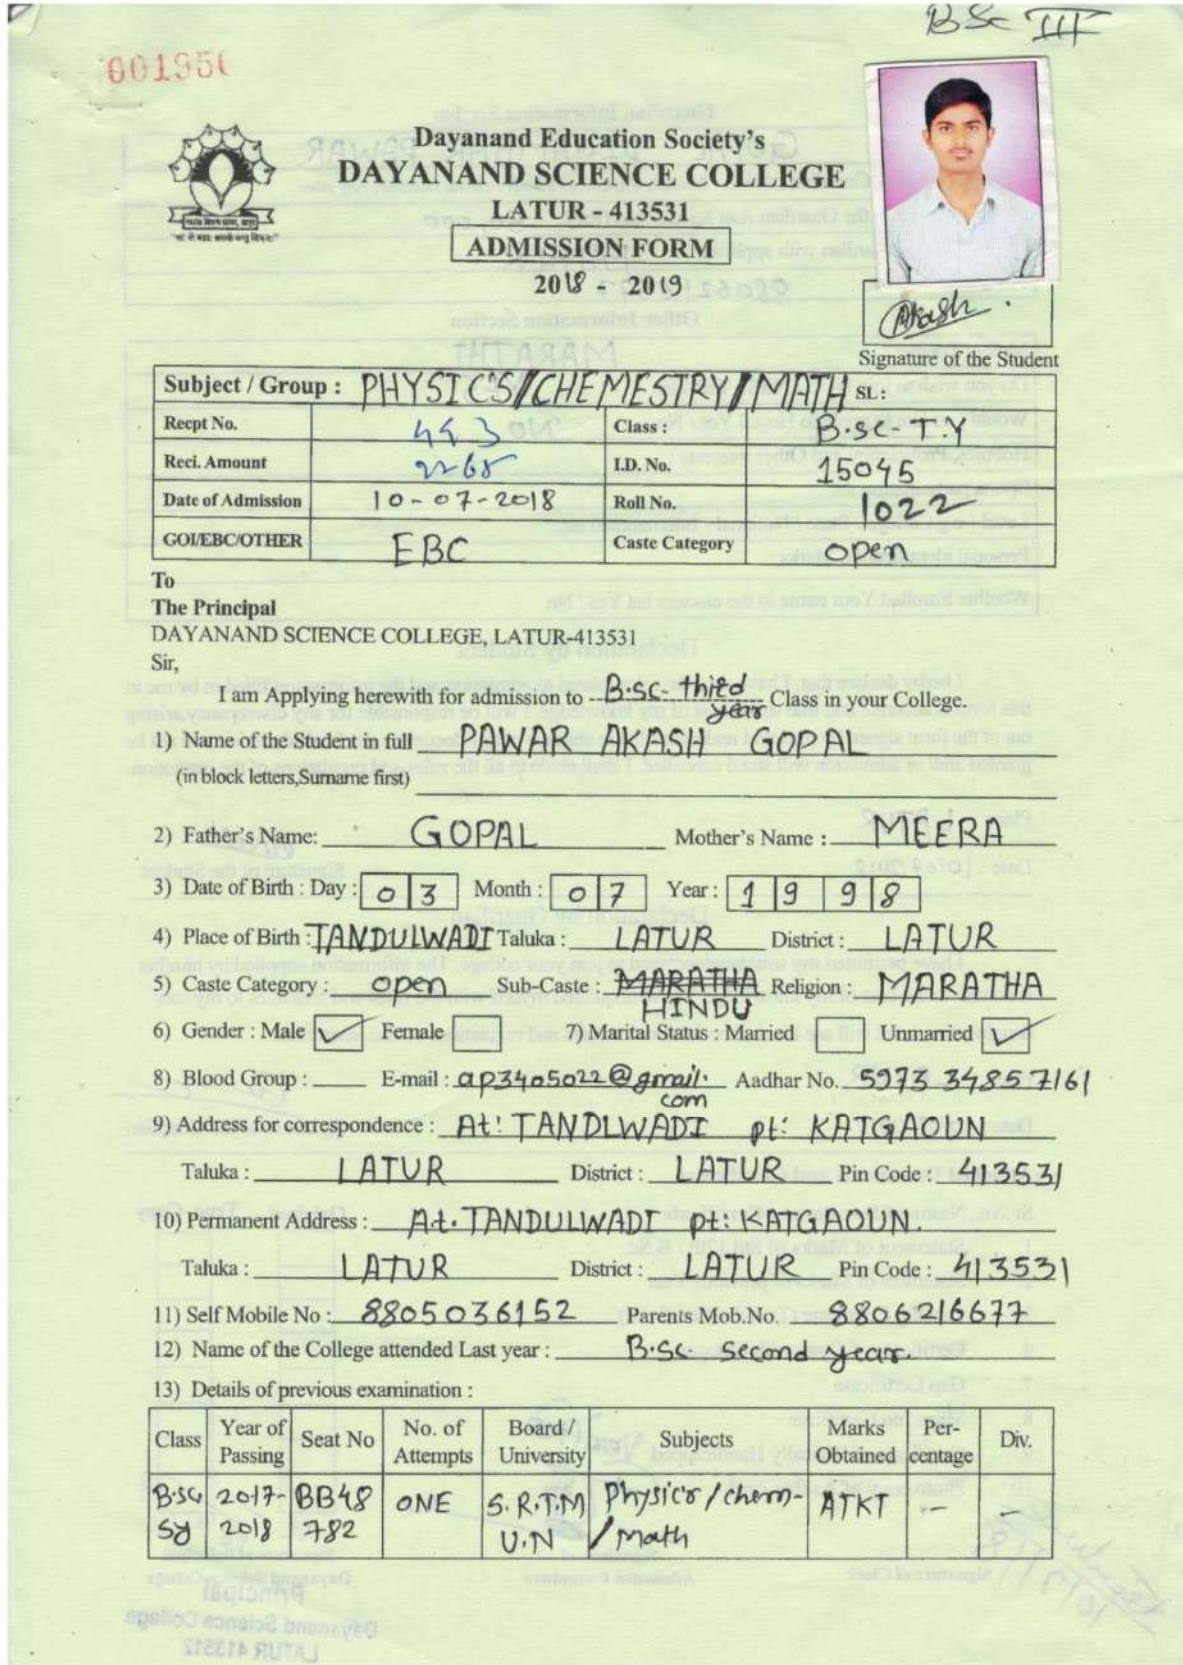 BSc III
001950
Dayanand Education Society's
DAYANAND SCIENCE COLLEGE
LATUR - 413531
ADMISSION FORM
2018 - 2019
Akash
Signature of the Student
Subject / Group : PHYSIC'S/CHEMESTRY/MATH SL:
Recpt No. 493 Class : B.sc-T.Y
Reci. Amount 2268 I.D. No. 15045
Date of Admission 10-07-2018 Roll No. 1022
GOI/EBC/OTHER EBC Caste Category open
To
The Principal
DAYANAND SCIENCE COLLEGE, LATUR-413531
Sir,
I am Applying herewith for admission to B.sc- third year Class in your College.
1) Name of the Student in full PAWAR AKASH GOPAL
(in block letters,Surname first)
2) Father's Name: GOPAL Mother's Name : MEERA
3) Date of Birth : Day : 03 Month : 07 Year : 1998
4) Place of Birth : TANDULWADI Taluka : LATUR District : LATUR
5) Caste Category : open Sub-Caste : MARATHA HINDU Religion : MARATHA
6) Gender : Male Female 7) Marital Status : Married Unmarried
8) Blood Group : E-mail : ap3405022@gmail.com Aadhar No. 5973 34857161
9) Address for correspondence : At: TANDLWADI pt: KATGAOUN
Taluka : LATUR District : LATUR Pin Code : 413531
10) Permanent Address : At. TANDULWADI pt: KATGAOUN.
Taluka : LATUR District : LATUR Pin Code : 413531
11) Self Mobile No : 8805036152 Parents Mob.No. 8806216677
12) Name of the College attended Last year : B.Sc. second year.
13) Details of previous examination :
Class Year of Passing Seat No No. of Attempts Board / University Subjects Marks Obtained Per-centage Div.
B.sc Sy 2017-2018 BB48782 ONE S.R.T.M U.N Physic's/chem-/Math ATKT -- -